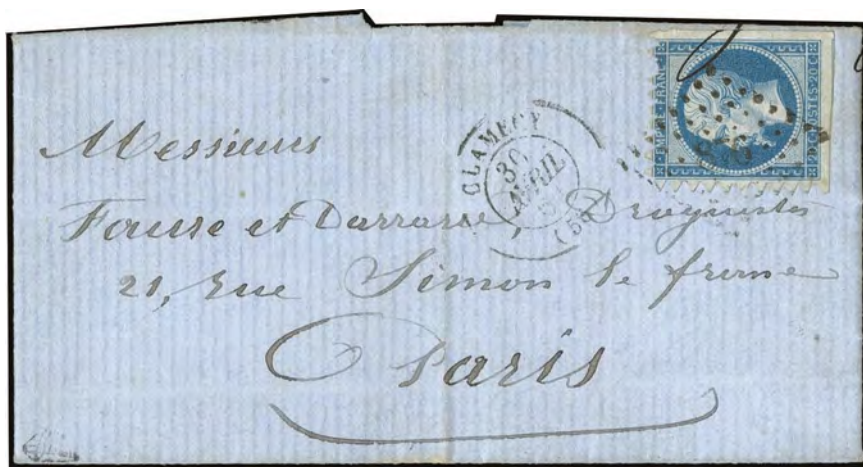 Messieurs
Fausse et Darrasse, Droguistes
21, rue Simon le franc
Paris
CLAMECY
30
AVRIL
EMPIRE FRANC
20 C POSTES 20 C